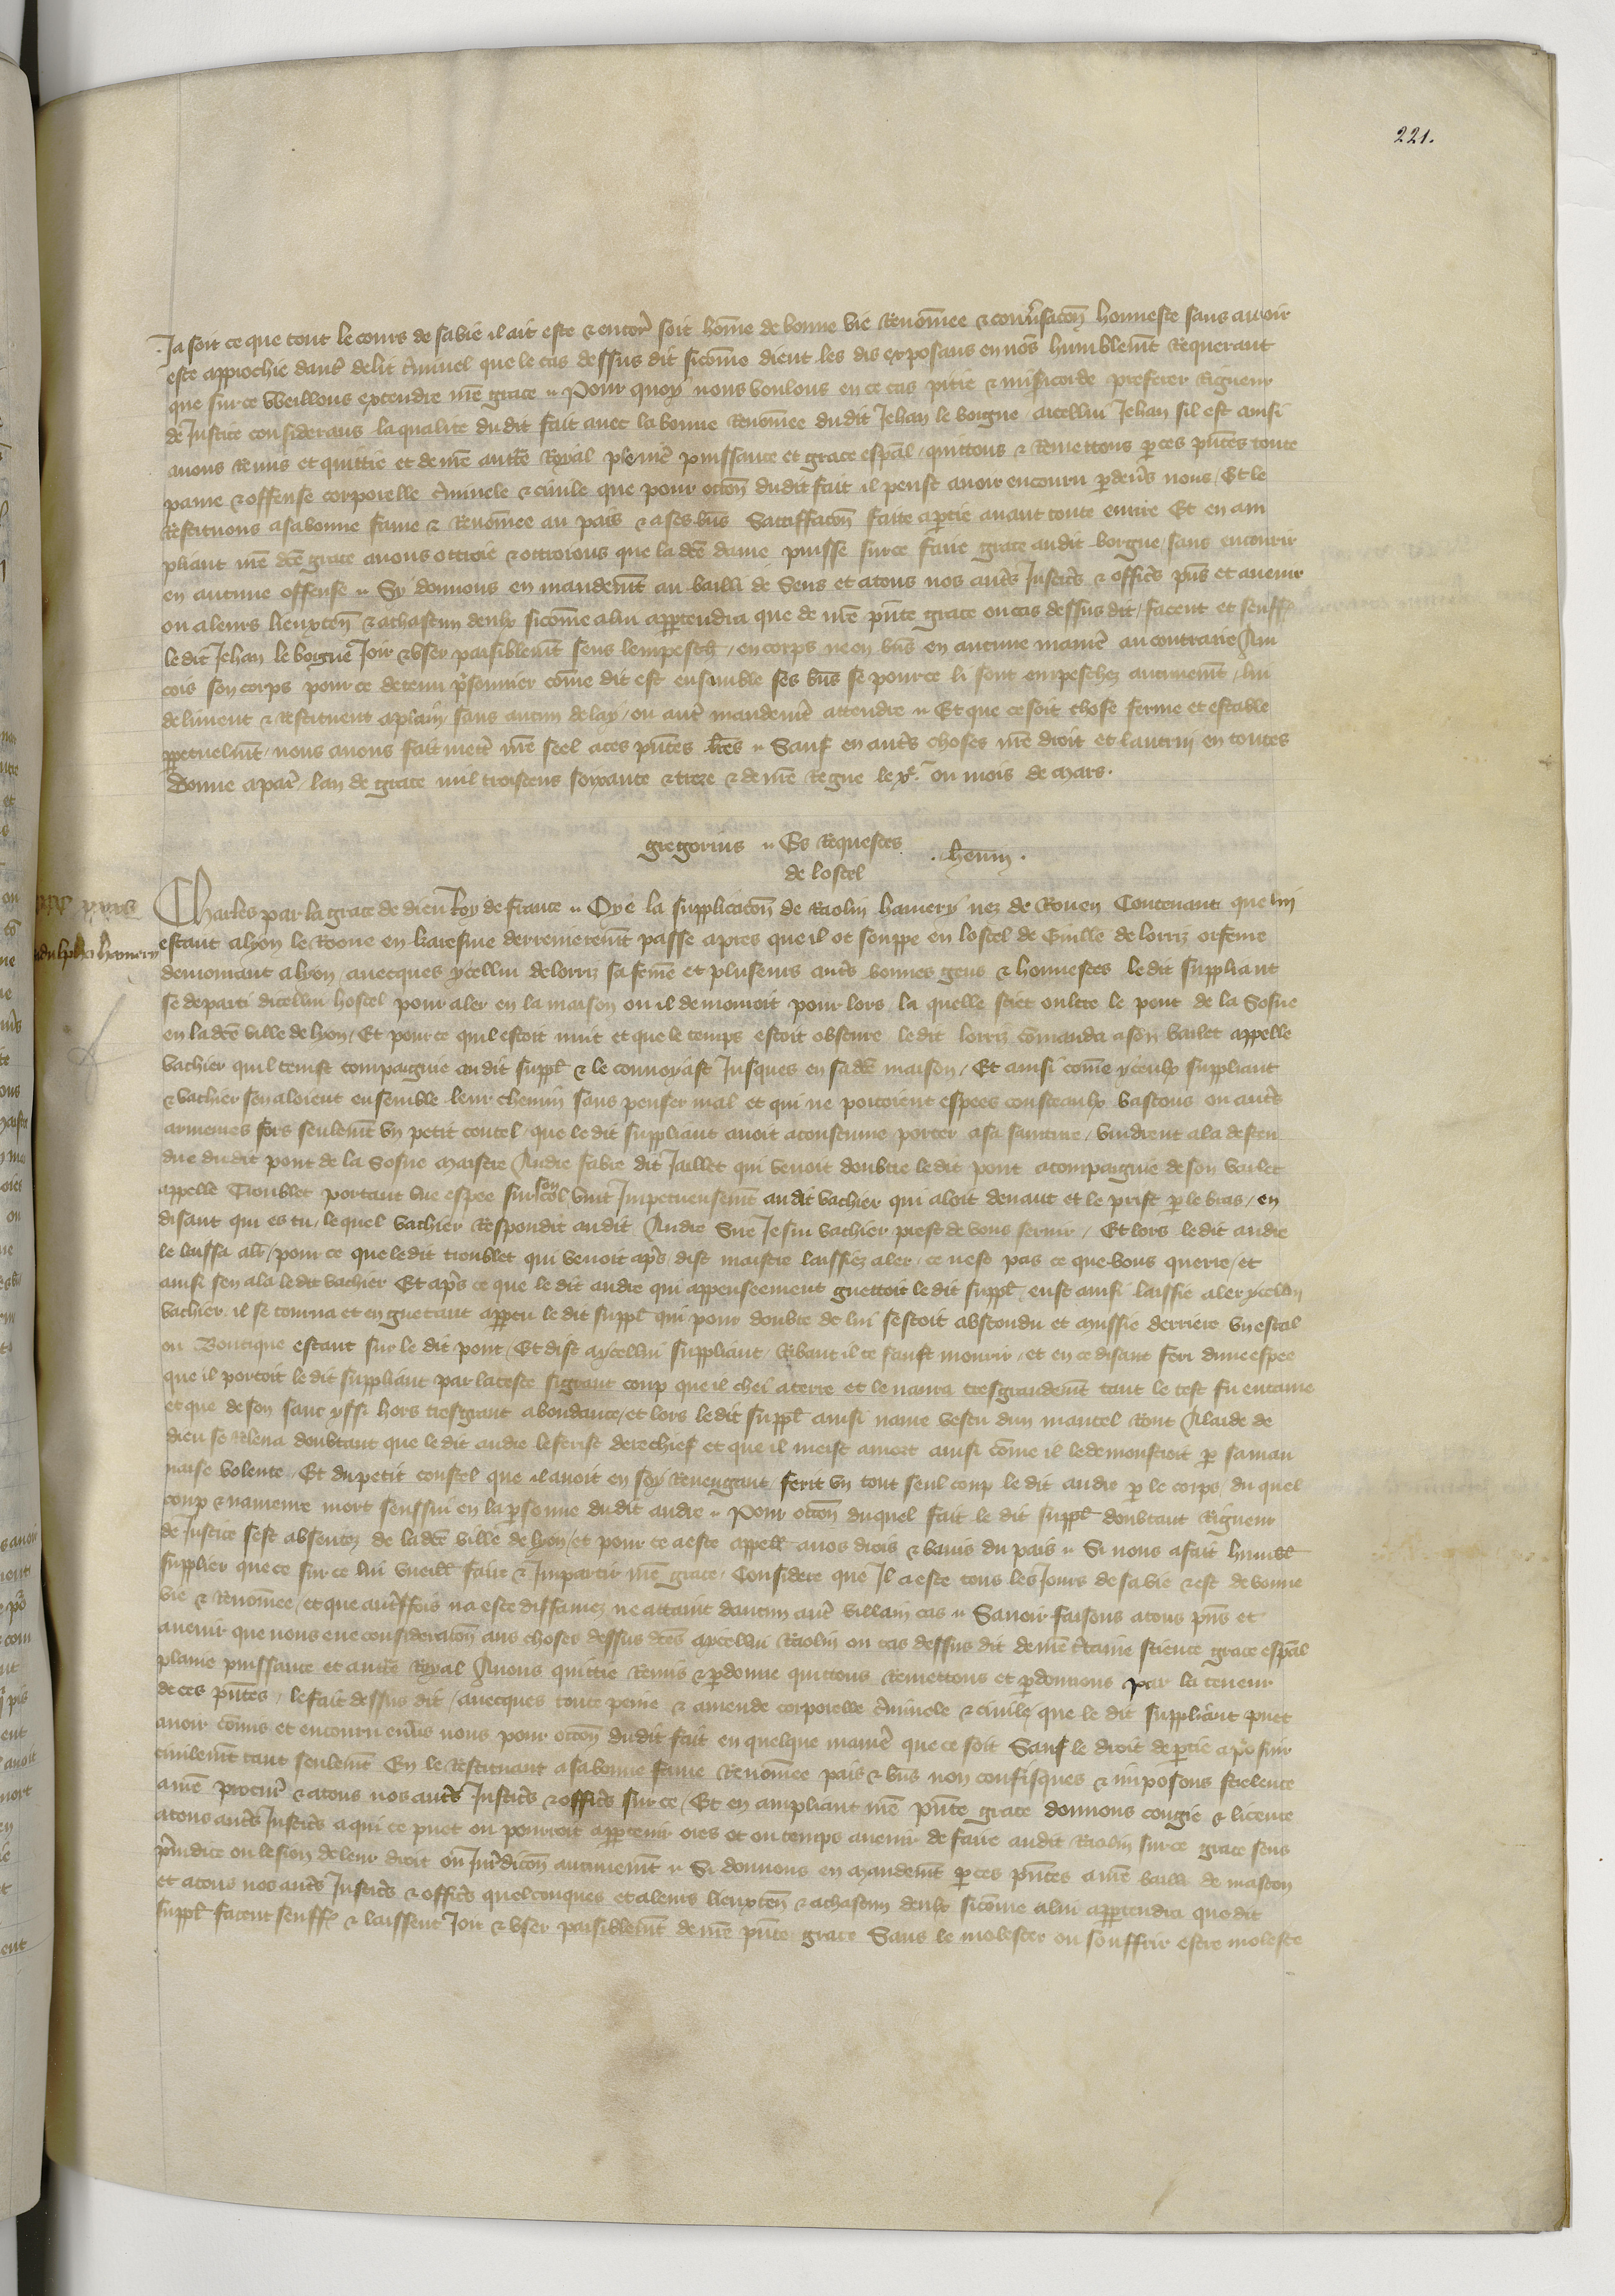 221.
Ja soit ce que tout le cours de sa vie il ait este & encor soit home de bonne vie Renomee & conversacon honneste sans avoir
este approchie daut delit criminel que le cas dessus dit sicome dient les dis exposans en nos humblemt Requerant
que sur ce Vveillons extendre nre grace Pour quoy nous voulons en ce cas pitie & misericorde preferer Rigueur
de Justice considerans la qualite du dit fait avec la bonne Renomee dudit Jehan le borgne aicellui Jehan sil est ainsi
avons Remis et quittie et de nre aucte Royal pleniere puissance et grace espal quittons & Remettons p ces pntes toute
paine & offense corporelle criminele & civile que pour occon dudit fait il peust avoir encouru p devs nous Et le
Restituons a sa bonne fame & Renomee au pais & a ses bns Sattiffacon faite a ptie avant toute euvre Et en am
pliant nre dce grace avons ottroie & ottroions que la dce dame puisse sur ce faire grace au dit borgne sans encourir
en aucune offense Sy donnons en mandemt au bailli de Sens et a tous nos auts Justics & offics pns et avenir
ou a leurs lieuxten & a chascun deulx sicome a lui appartendra que de nre pnte grace ou cas dessus dit facent et seuff
le dit Jehan le borgne Joir & user paisiblemt sens lempesch en corps ne en bns en aucune manie au contraire Ain
cois son corps pour ce detenu prisonnier come dit est ensemble ses bns se pour ce li sont empeschez aucunemt lui
delivrent & Restituent a plain sans aucun delay ou aut mandemt attendre Et que ce soit chose ferme et estable
perpetuelmt nous avons fait mett nre seel a ces pntes lres Sauf en auts choses nre droit et lautrui en toutes
Donne a par lan de grace mil troiscens soixante & treze & de nre Regne le xe ou mois de Mars.
gregorius Es Requestes . henin .
de lostel
Charles par la grace de dieu Roy de france Oye la supplicacon de Raolin hamery nez de Rouen Contenant que lui
estant a lyon le Roone en karesme derrenieremt passe apres que il ot souppe en lostel de Guille de lorriz orfeure
demourant a lyon avecques ycellui de lorriz sa feme et plusieurs auts bonnes gens & honnestes le dit suppliant
se departi dicellui hostel pour aler en la maison ou il demouroit pour lors la quelle siet oultre le pont de la Sosne
en la dce ville de lyon Et pour ce quil estoit nuit et que le temps estoit obscure le dit lorriz comanda a son varlet appelle
vachier quil tenist compaignie au dit suppl & le convoyast Jusques en sa dce maison Et ainsi come yceulx suppliant
& vachier sen aloient ensemble leur chemin sans penser mal et qui ne portoient espees cousteaulx bastons ou auts
armeures fors seulemt un petit coutel que le dit suppliant avoit acoustume porter a sa sainture vindrent a la desten
due du dit pont de la Sosne Maistre Andre fabre dit Jaillet qui venoit doubtre le dit pont acompaignie de son varlet
appelle Troublet portant une espee sur son col vint Impetueusemt au dit vachier qui aloit devant et le prist p le bras en
disant qui es tu lequel vachier Respondit au dit Andre Sire Je sui vachier prest de vous servir Et lors le dit andre
le laissa aler pour ce que le dit troublet qui venoit aps dist maistre laissiez aler ce nest pas ce que vous querez et
ainsi sen ala le dit vachier Et aps ce que le dit andre qui appenseement guettoit le dit suppl eust ainsi laissie aler ycellui
vachier il se tourna et en guetant apperceu le dit suppl qui pour doubte de lui sestoit abscondu et mussie derriere un estal
ou Boutique estant sur le dit pont Et dist a ycellui suppliant Ribaut il te fault mourir et en ce disant feri dune espee
que il portoit le dit suppliant par la teste si grant coup que il chei a terre et le navra tresgrandemt tant le test fu entame
et que de son sanc yssi hors tresgrant abondance et lors le dit suppl ainsi navre vestu dun mantel Ront Alaide de
dieu se Releva doubtant que le dit andre le ferist derechief et que il meist a mort ainsi come il le demonstroit p sa mau
vaise volente Et du petit coustel que il avoit en soy Revengant ferit un tout seul coup le dit andre p le corps du quel
coup & navreure mort sensui en la psonne du dit andre Pour occon duquel fait le dit suppl doubtant Rigueur
de Justice sest absentez de la dce ville de lyon et pour ce a este appelle a nos drois & banis du pais Si nous a fait humbl
supplier que ce sur ce lui vueill faire & Impartir nre grace Considere que Il a este tous les Jours de sa vie & est de bonne
vie & Renomee et que autffois na este diffamez ne attaint daucun aut villain cas Savoir faisons a tous pns et
avenir que nous eue consideracon aus choses dessus dces a ycellui Raolin ou cas dessus dit de nre certaine science grace espal
plaine puissance et aucte Royal Avons quittie Remis & pdonne quittons Remettons et pdonnons par la teneur
de ces pntes le fait dessus dit avecques toute peine & amende corporelle criminele & civile que le dit suppliant puet
avoir comis et encouru envs nous pour occon du dit fait en quelque manie que ce soit Sauf le droit de ptie a poursuir
civilemt tant seulemt En le Restituant a sa bonne fame Renomee pais & bns non confisques & imposons scilence
a nre procur & a tous nos auts Justics & offics sur ce Et en ampliant nre pnte grace donnons congie & licence
a tous auts Justics a qui ce puet ou pourroit appartenir ores et ou temps avenir de faire au dit Raolin sur ce grace sens
prjudice ou lesion de leur droit ou Jurdicon aucunemt Si donnons en Mandemt p ces pntes a nre bailli de mascon
et a tous nos auts Justics & offics quelconques et a leurs lieuxten & a chascun deulx sicome a lui appartendra que dit
suppl facent seuff & laissent Joir & user paisiblemt de nre pnte grace Sans le molester ou souffrir estre moleste